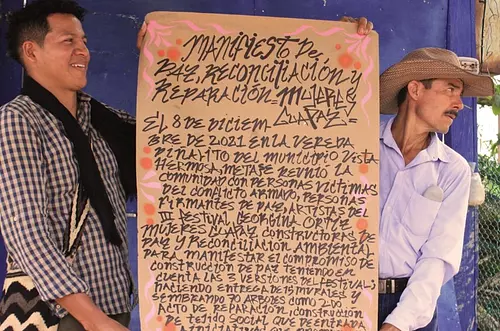 MANIFIESTO DE
PAZ, RECONCILIACIÓN Y
REPARACIÓN = MUJERES
GUAPAZ =
EL 8 DE DICIEM
BRE DE 2021 EN LA VEREDA
PIÑALITO DEL MUNICIPIO VISTA
HERMOSA, META SE REUNIO LA
COMUNIDAD CON PERSONAS VICTIMAS
DEL CONFLICTO ARMADO, PERSONAS
FIRMANTES DE PAZ, ARTISTAS DEL
III FESTIVAL GEORGINA ORTIZ
MUJERES GUAPAZ CONSTRUCTORAS DE
PAZ Y RECONCILIACION AMBIENTAL
PARA MANIFESTAR EL COMPROMISO DE
CONSTRUCCIÓN DE PAZ TENIENDO EN
CUENTA LAS 3 VERSIONES DEL FESTIVAL,
HACIENDO ENTREGA DE 15 MURALES Y
SEMBRANDO 70 ARBOLES COMO
ACTO DE REPARACIÓN, CONSTRUCCION
DE TEJIDO SOCIAL QUE DE ENTRADA